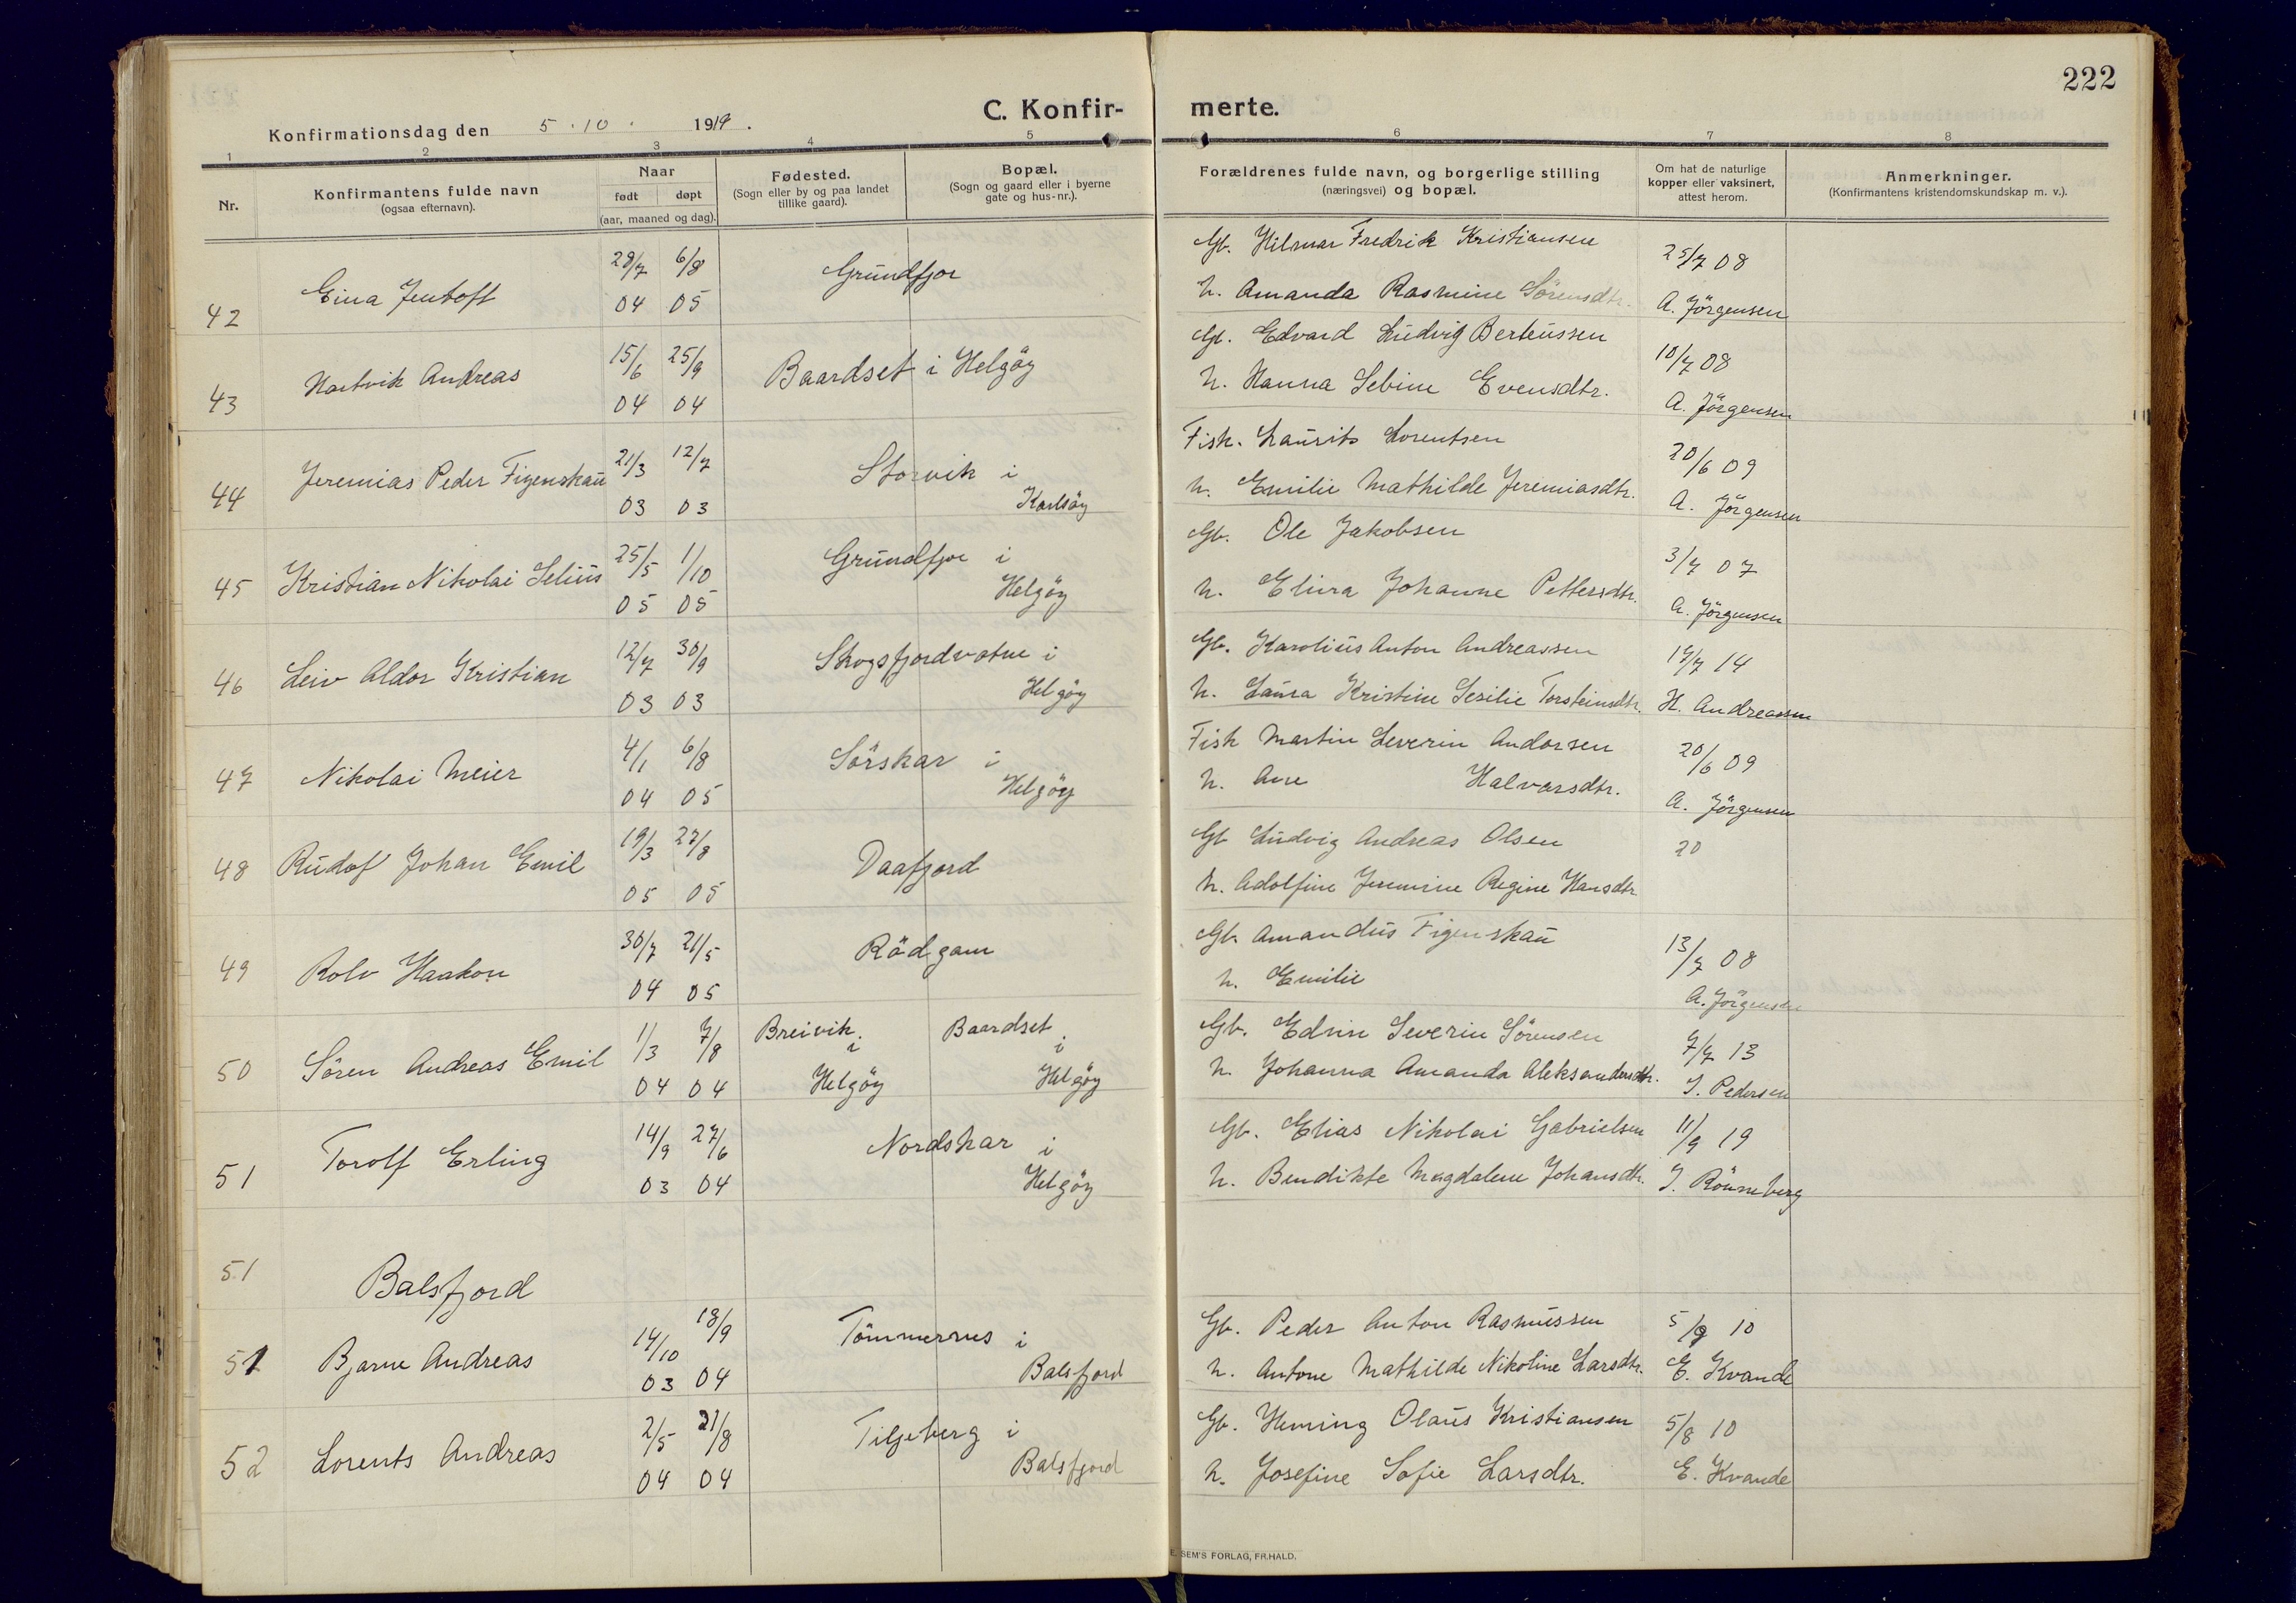 222
C. Konfir- merte.
Konfirmationsdag den 5.10. 1919.
1 2 3 4 5 6 7 8
Nr.
Konfirmantens fulde navn
(ogsaa efternavn).
Naar
født døpt
(aar, maaned og dag).
Fødested.
(Sogn eller by og paa landet
tillike gaard).
Bopæl.
(Sogn og gaard eller i byerne
gate og hus-nr.).
Forældrenes fulde navn, og borgerlige stilling
(næringsvei) og bopæl.
Om hat de naturlige
kopper eller vaksinert,
attest herom.
Anmerkninger.
(Konfirmantens kristendomskundskap m. v.).
28/7 6/8 Gb. Hilmar Fredrik Kristiansen 25/7 08
42 Eina Jentoft 04 05 Grundfjor h. Amanda Rasmine Sörensdtr. A. Jörgensen
15/6 25/9 Gb. Edvard Ludvig Berteussen 10/7 08
43 Hartvik Andreas 04 04 Baardset i Helgöy h. Hanna Sebine Evensdtr. A. Jörgensen
21/3 12/7 Storvik i Fisk. Laurits Lorentsen 20/6 09
44 Jeremias Peder Figenskau 03 03 Karlsöy h. Emilie Mathilde Jeremiasdtr. A. Jörgensen
25/5 1/10 Grundfjor i Gb. Ole Jakobsen 3/7 07
45 Kristian Nikolai Selius 05 05 Helgöy h. Elura Johanne Pettersdtr. A. Jörgensen
12/7 30/9 Skogsfjordvatne i Gb. Karolius Anton Andreassen 17/7 14
46 Leiv Aldor Kristian 03 03 Helgöy h. Laura Kristine Sesilie Torsteinsdtr. H. Andreassen
4/1 6/8 Sörskar i Fisk Martin Severin Andorsen 20/6 09
47 Nikolai Meier 04 05 Helgöy h. Ane Halvarsdtr. A. Jörgensen
19/3 27/8 Gb Ludvig Andreas Olsen 20
48 Rudof Johan Emil 05 05 Daafjord h. Adolfine Jeremine Regine Hansdtr
30/7 21/5 Rödgam Gb. Amandus Figenskau 13/7 08
49 Rolv Haakon 04 05 h. Emilie A. Jörgensen
1/3 7/8 Breivik i Baardset i Gb. Edvin Severin Sörensen 7/7 13
50 Sören Andreas Emil 04 04 Helgöy Helgöy h. Johanna Amanda Aleksandersdtr. I. Pedersen
14/9 27/6 Nordskar i Gb. Elias Nikolai Gabrielsen 11/9 19
51 Torolf Erling 03 04 Helgöy h. Bendikte Magdalene Johansdtr. J. Rönneberg
51 Balsfjord
14/10 18/9 Tömmernes i Gb. Peder Anton Rasmussen 5/9 10
51 Bjarne Andreas 03 04 Balsfjord h. Antone Mathilde Nikoline Larsdtr. E. Kvande
2/5 21/8 Tiljeberg i Gb. Heming Olaus Kristiansen 5/8 10
52 Lorents Andreas 04 04 Balsfjord h. Josefine Sofie Larsdtr. E. Kvande
E. SEM'S FORLAG, FR.HALD.